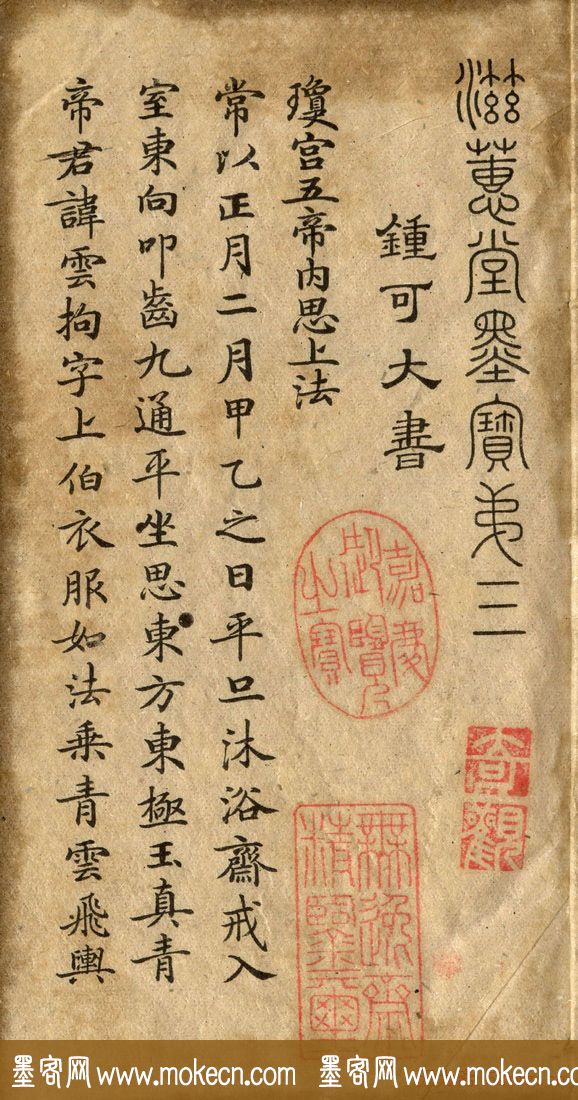 滋蕙堂墨寶弟三
鍾可大書
瓊宮五帝內思上法
常以正月二月甲乙之日平旦沐浴齋戒入
室東向叩齒九通平坐思東方東極玉真青
帝君諱雲拘字上伯衣服如法乘青雲飛輿
嘉慶御覽之寶
奇觀
無逸齋精鑒璽
墨客网 www.mokecn.com 墨客网 www.mokecn.com